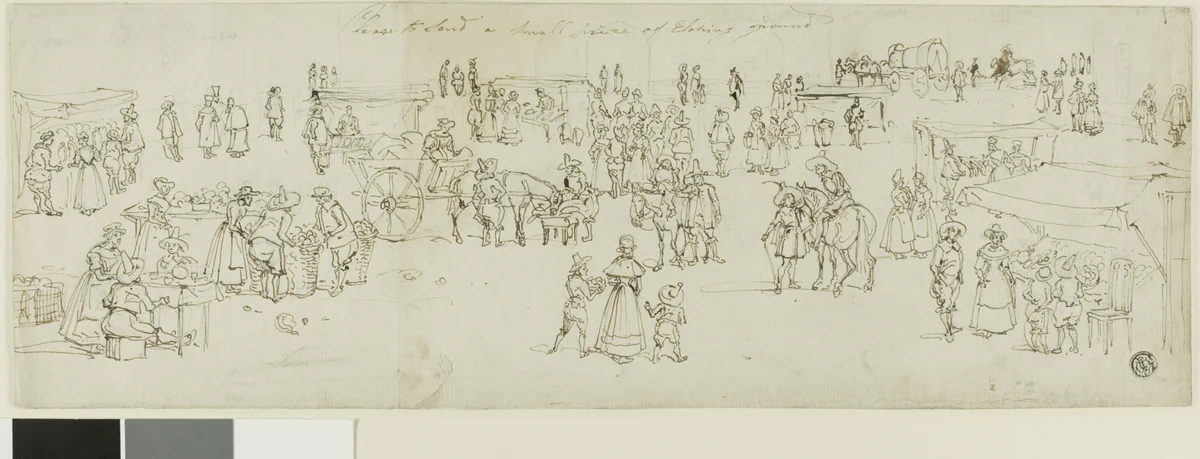 Please to Send a Small peice of Etching ground